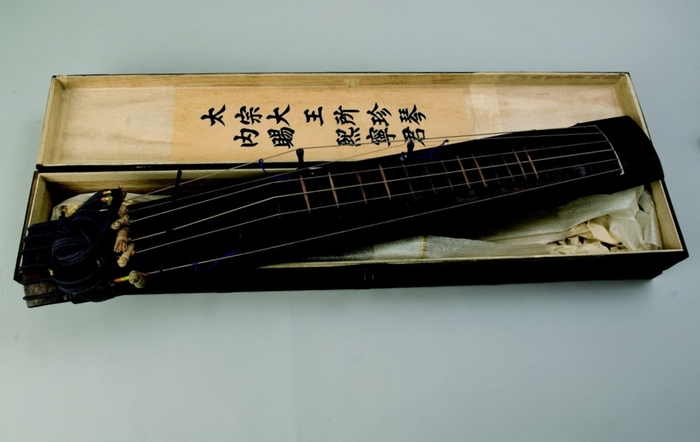 太宗大王所珍琴
內賜熙寧君